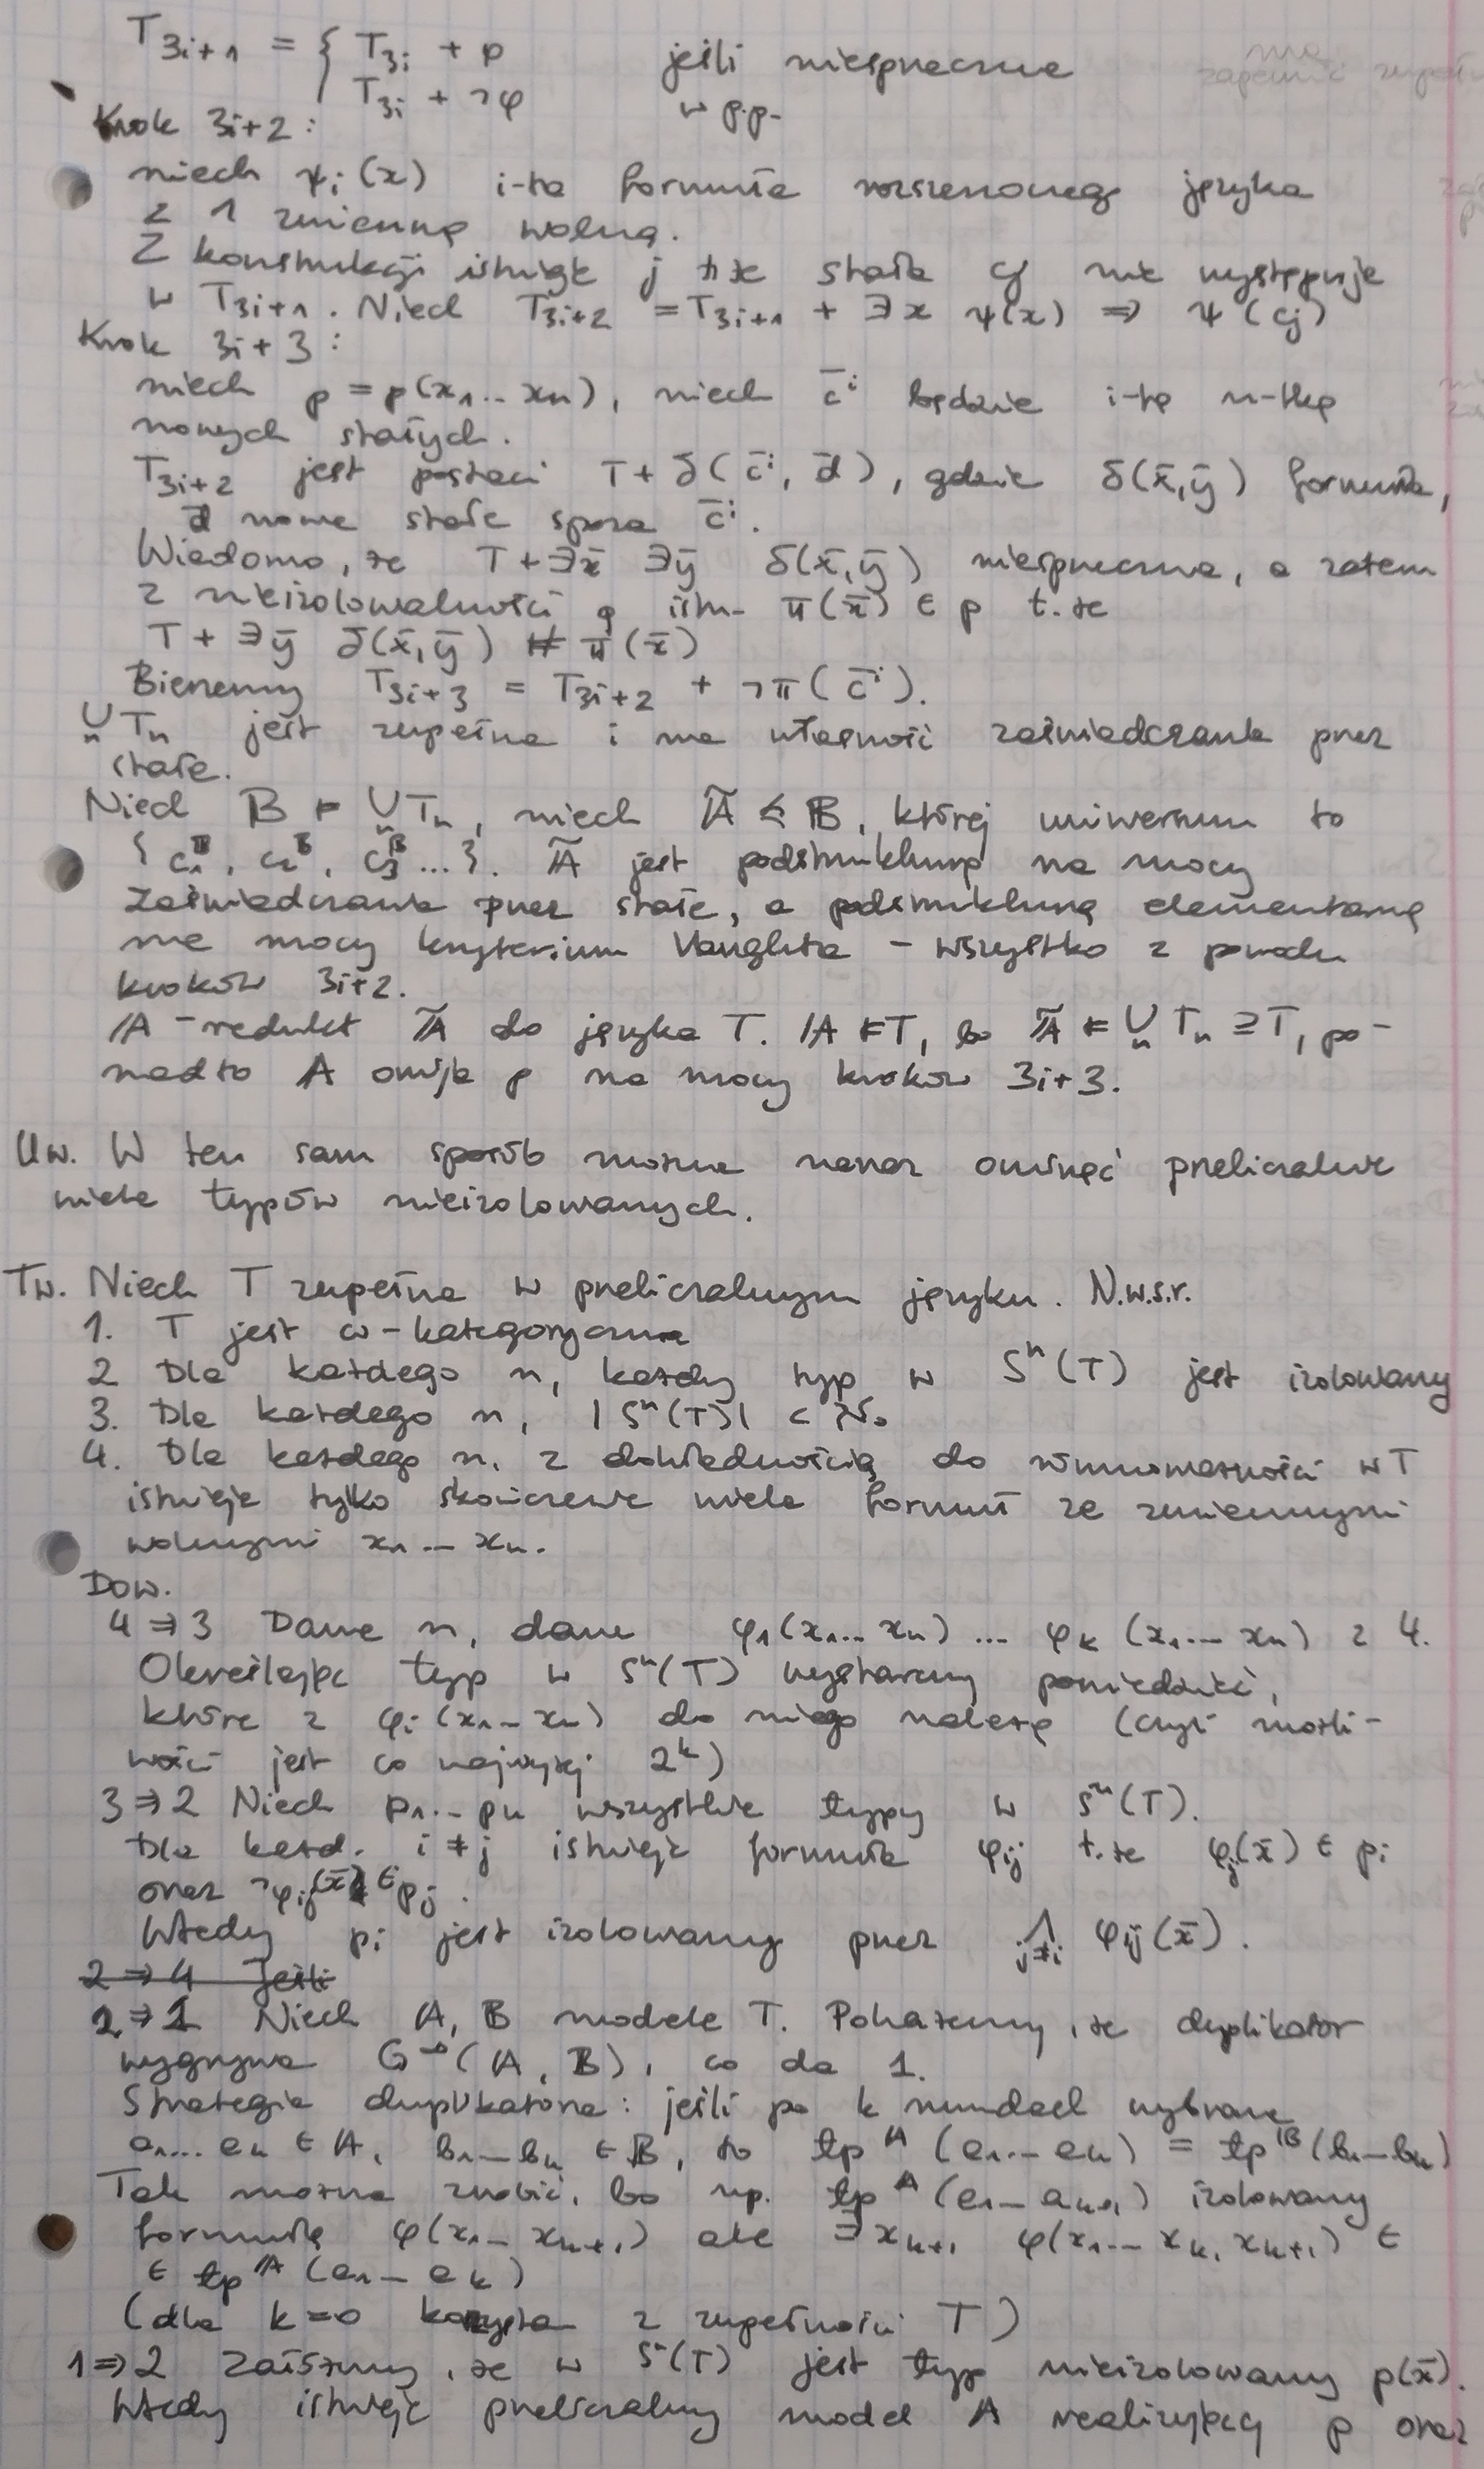 T_{3i+1} = { T_{3i} + φ jeśli niesprzeczne
T_{3i} + ¬φ w p.p.
Krok 3i+2:
niech ψ_i(x) i-ta formuła rozszerzonego języka
z 1 zmienną wolną.
Z konstrukcji istnieje j t.że stała c_j nie występuje
w T_{3i+1}. Niech T_{3i+2} = T_{3i+1} + ∃x ψ(x) ⇒ ψ(c_j)
Krok 3i+3:
niech p = p(x_1...x_n), niech c̄^i będzie i-tą n-tką
nowych stałych.
T_{3i+2} jest postaci T + δ(c̄^i, d̄), gdzie δ(x̄,ȳ) formuła,
d̄ nowe stałe spoza c̄^i.
Wiadomo, że T + ∃x̄ ∃ȳ δ(x̄,ȳ) niesprzeczna, a zatem
z nieizolowalności p istn. π(x̄) ∈ p t.że
T + ∃ȳ δ(x̄,ȳ) ⊬ π(x̄)
Bierzemy T_{3i+3} = T_{3i+2} + ¬π(c̄^i).
⋃_n T_n jest zupełna i ma własność zaświadczania przez
stałe.
Niech 𝔹 ⊨ ⋃_n T_n, niech 𝔸̃ ≼ 𝔹, której uniwersum to
{c_1^𝔹, c_2^𝔹, c_3^𝔹...}. 𝔸̃ jest podstrukturą na mocy
zaświadczania przez stałe, a podstrukturą elementarną
na mocy kryterium Vaughta - wszystko z powodu
kroków 3i+2.
𝔸 - redukt 𝔸̃ do języka T. 𝔸 ⊨ T, bo 𝔸̃ ⊨ ⋃_n T_n ⊇ T, po-
nadto 𝔸 omija p na mocy kroków 3i+3.
Uw. W ten sam sposób można naraz ominąć przeliczalnie
wiele typów nieizolowanych.
Tw. Niech T zupełna w przeliczalnym języku. N.w.s.r.
1. T jest ω-kategoryczna
2 Dla każdego n, każdy typ w S^n(T) jest izolowany
3. Dla każdego n, |S^n(T)| < ℵ_0
4. Dla każdego n, z dokładnością do równoważności w T
istnieje tylko skończenie wiele formuł ze zmiennymi
wolnymi x_1...x_n.
Dow.
4 ⇒ 3 Dane n, dane φ_1(x_1...x_n) ... φ_k(x_1...x_n) z 4.
Określając typ w S^n(T) wystarczy powiedzieć,
które z φ_i(x_1...x_n) do niego należą (czyli możli-
wości jest co najwyżej 2^k)
3 ⇒ 2 Niech p_1...p_n wszystkie typy w S^n(T).
Dla każd. i ≠ j istnieje formuła φ_{ij} t.że φ_{ij}(x̄) ∈ p_i
oraz ¬φ_{ij}(x̄) ∈ p_j.
Wtedy p_i jest izolowany przez ⋀_{j≠i} φ_{ij}(x̄).
2 ⇒ 4 Jeśli
2 ⇒ 1 Niech 𝔸, 𝔹 modele T. Pokażemy, że duplikator
wygrywa G^∞(𝔸, 𝔹), co da 1.
Strategia duplikatora: jeśli po k rundach wybrane
a_1...a_k ∈ 𝔸, b_1...b_k ∈ 𝔹, to tp^𝔸(a_1...a_k) = tp^𝔹(b_1...b_k)
Tak można zrobić, bo np. tp^𝔸(a_1...a_{k+1}) izolowany
formułą φ(x_1...x_{k+1}) ale ∃x_{k+1} φ(x_1...x_k, x_{k+1}) ∈
∈ tp^𝔸(a_1...a_k)
(dla k=0 korzysta z zupełności T)
1 ⇒ 2 Załóżmy, że w S^n(T) jest typ nieizolowany p(x̄).
Wtedy istnieje przeliczalny model 𝔸 realizujący p oraz